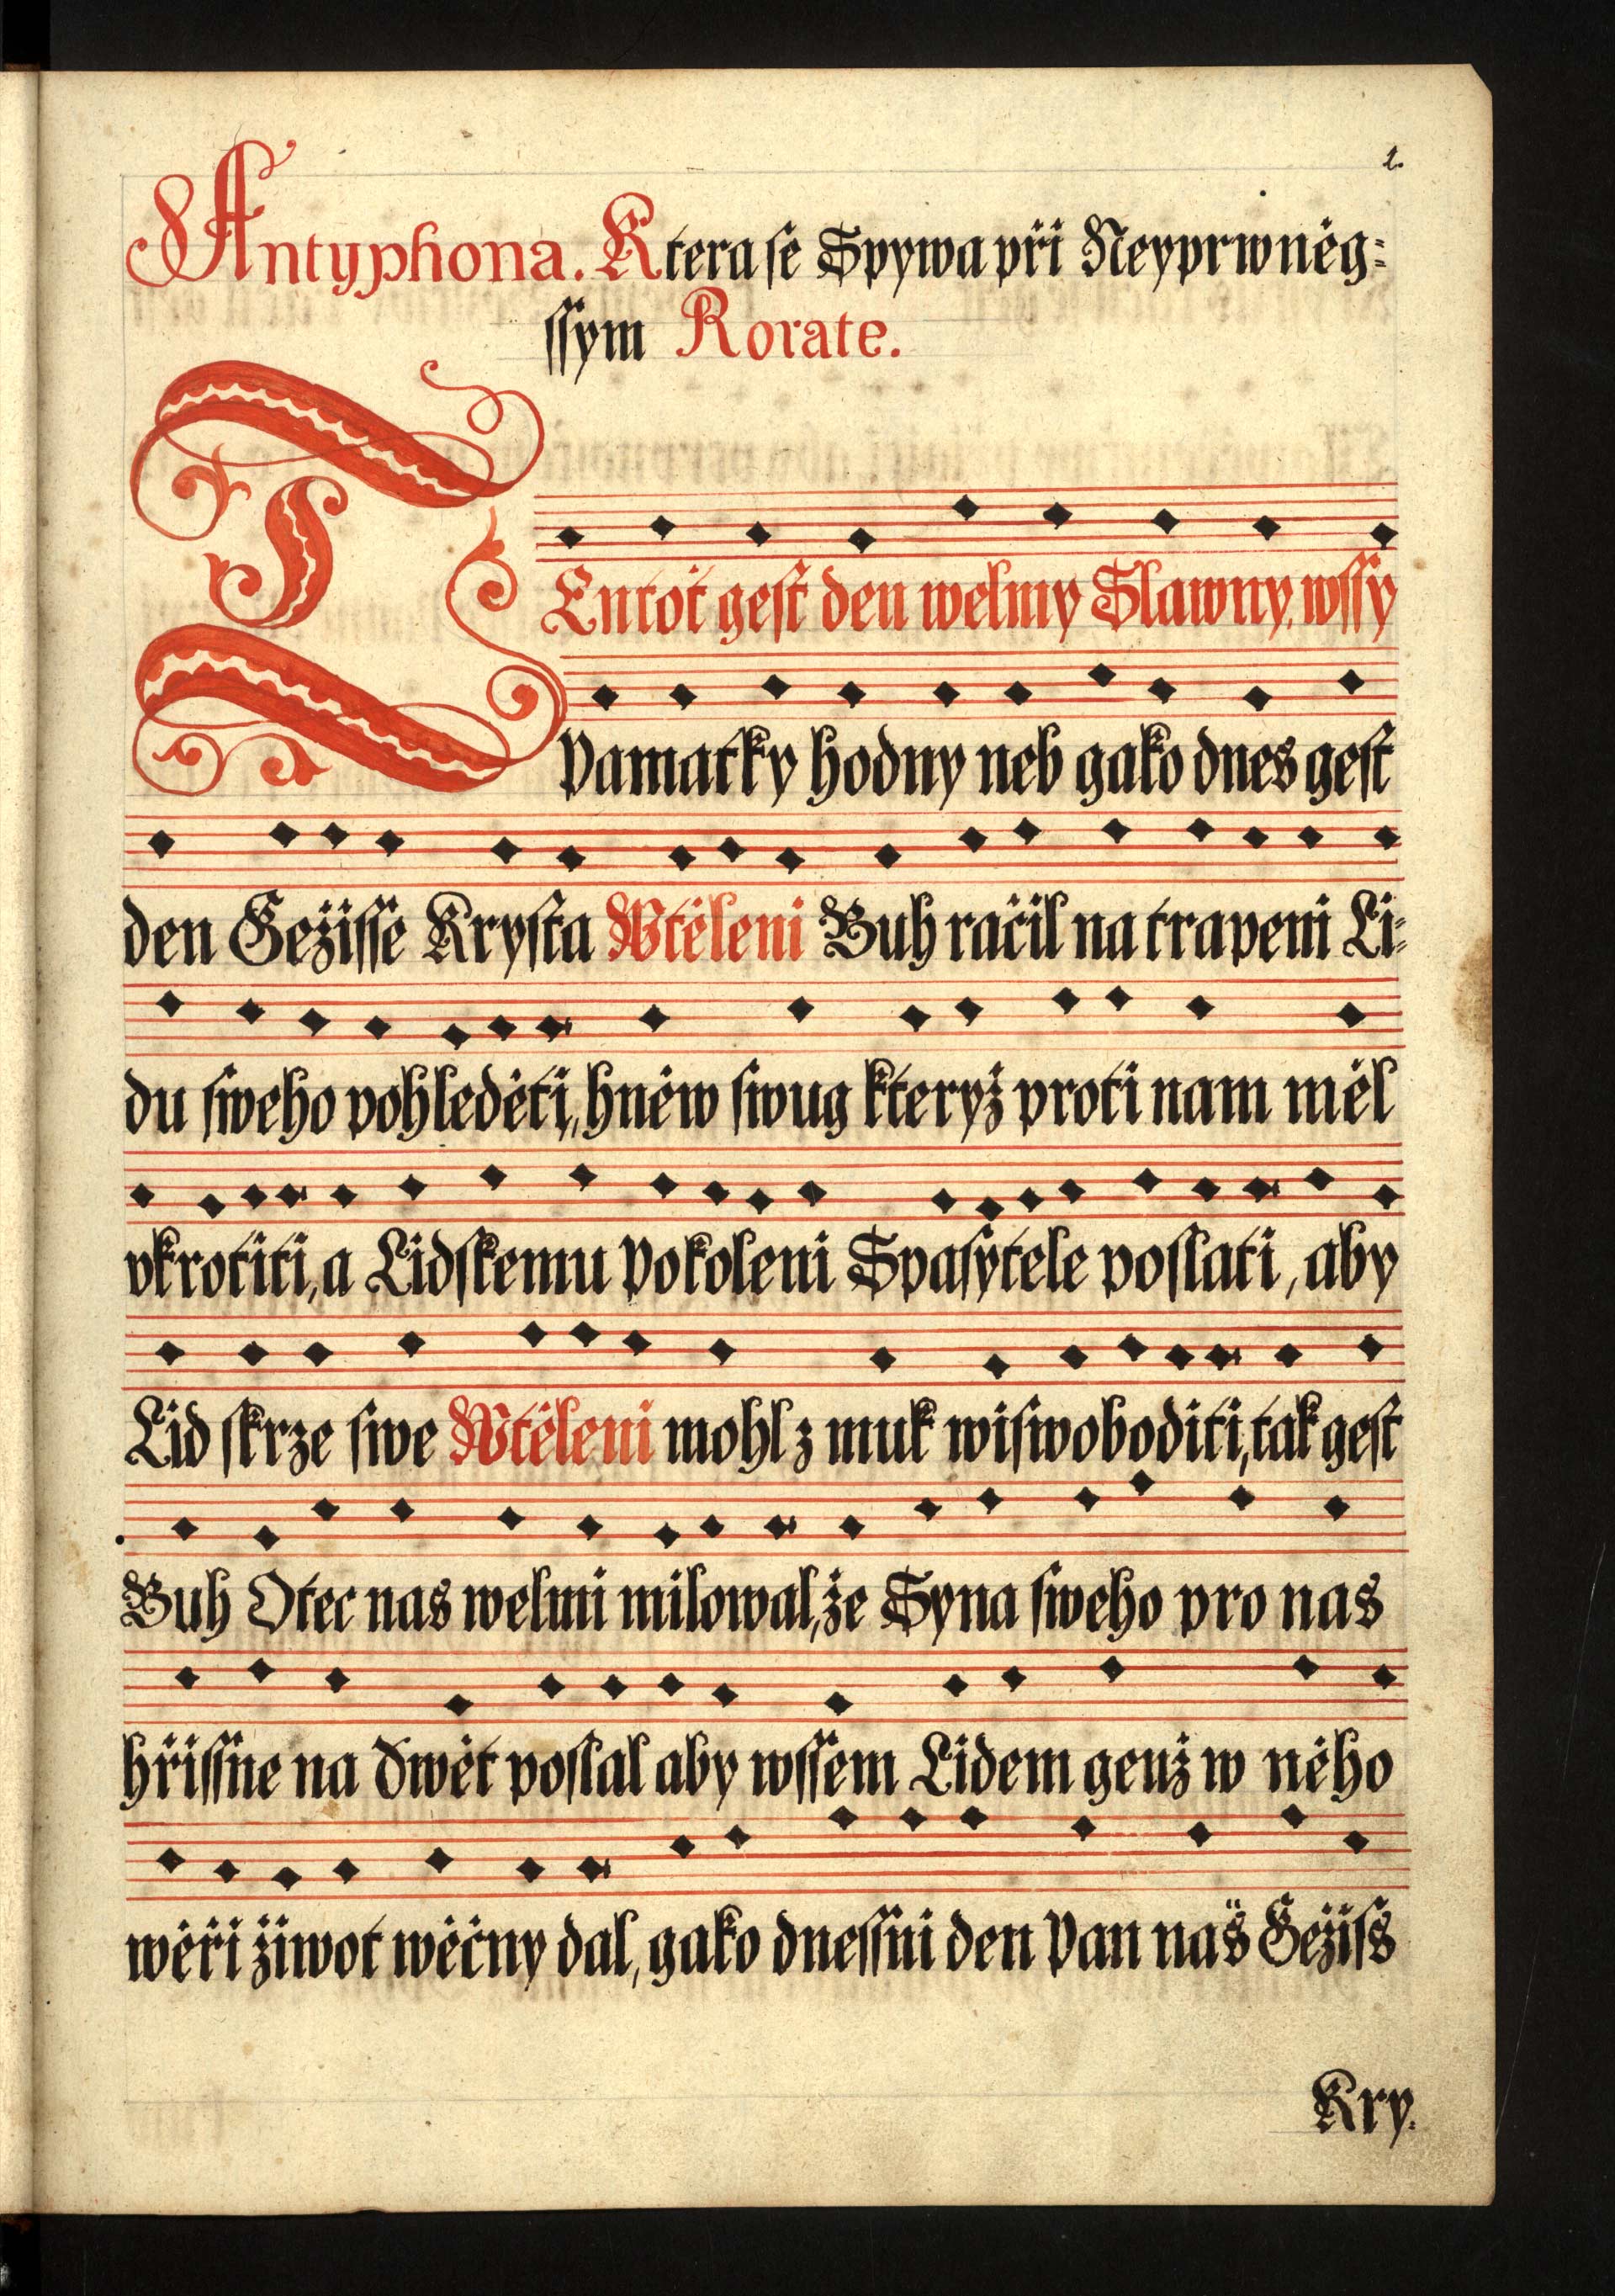 1.
Antyphona. Ktera ſe Spywa při Neyprwněg⸗
ſſym Rorate.
TEntoť geſt den welmy Slawny, wſſy
Pamatky hodny neb gako dnes geſt
den Gežiſſe Kryſta Wtěleni Buh račil na trapeni Li⸗
du ſweho pohleděti, hněw ſwug kteryž proti nam měl
vkrotiti, a Lidſkemu Pokoleni Spaſytele poſlati, aby
Lid ſkrze ſwe Wtěleni mohl z muk wiſwoboditi, tak geſt
Buh Otec nas welmi milowal, že Syna ſweho pro nas
hřiſſne na Swět poſlal aby wſſem Lidem genž w něho
wěři žiwot wěčny dal, gako dneſſni den Pan naš Gežiſs
Kry.